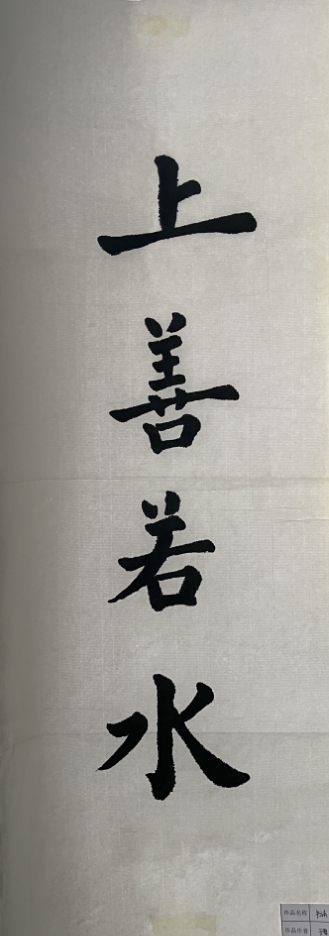 上善若水
作品名称
作品作者